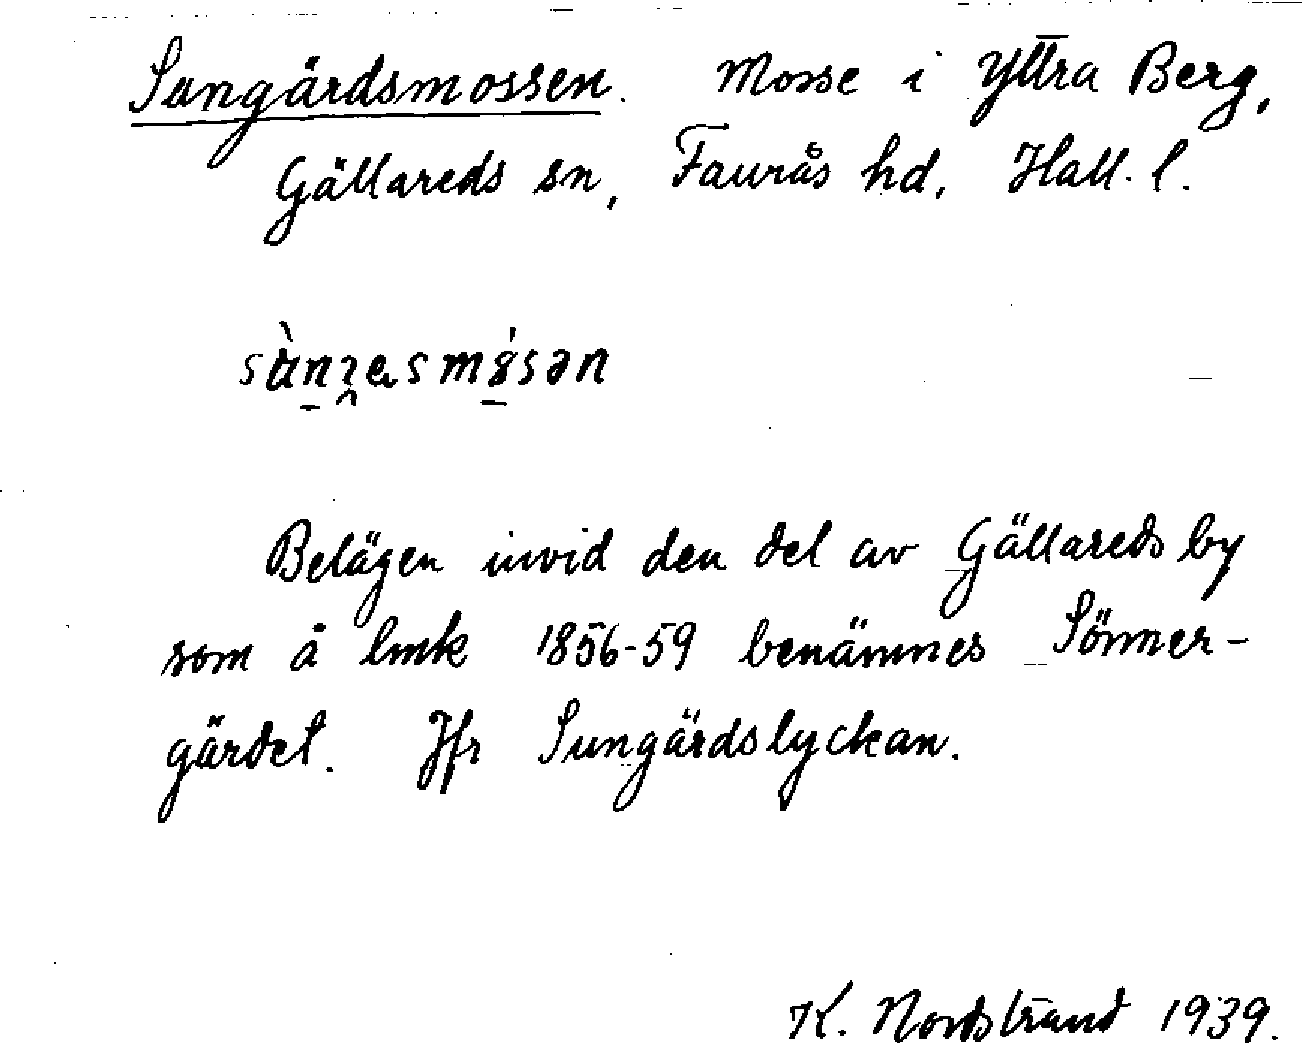 Sungärdsmossen. Mosse i Yttra Berg,
Gällareds sn, Faurås hd, Hall. l.
Belägen invid den del av Gällareds by
som å lmk 1856-59 benämnes Sönner-
gärdet. Jfr Sungärdslyckan.
K. Nordstrand 1939.